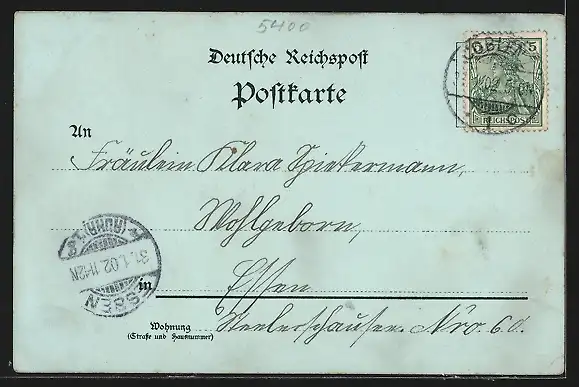 5400
Deutsche Reichspost
Postkarte
5
REICHSPOST
COBLENZ
An
Fräulein Klara Spiekermann,
Wohlgeborn,
ESSEN (RUHR) 1
31.1.02.11-12N
in Essen
Wohnung
(Straße und Hausnummer)
Steelerchaussee Nro. 60.